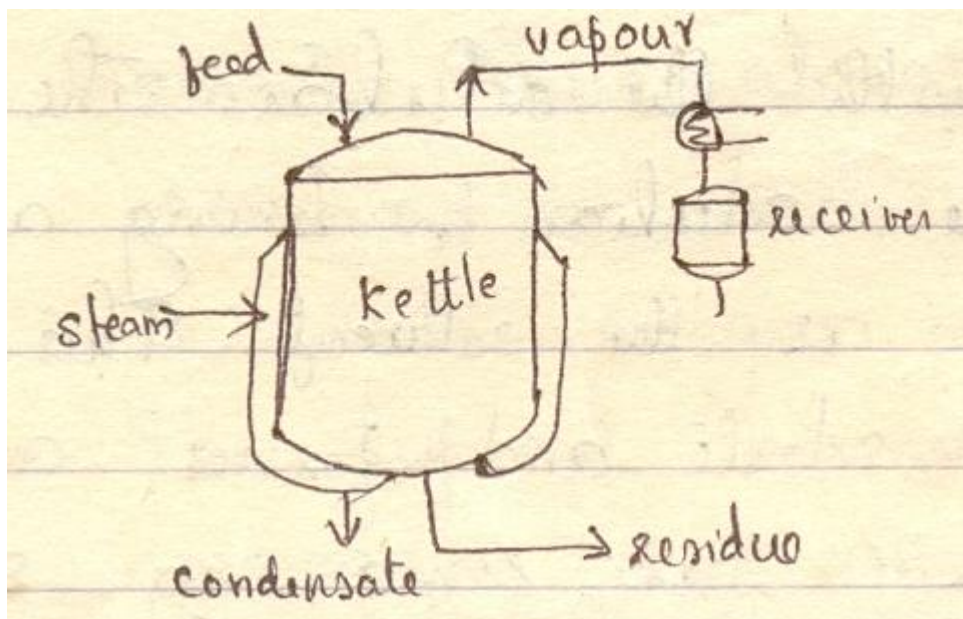 feed
vapour
receiver
kettle
steam
condensate
residue